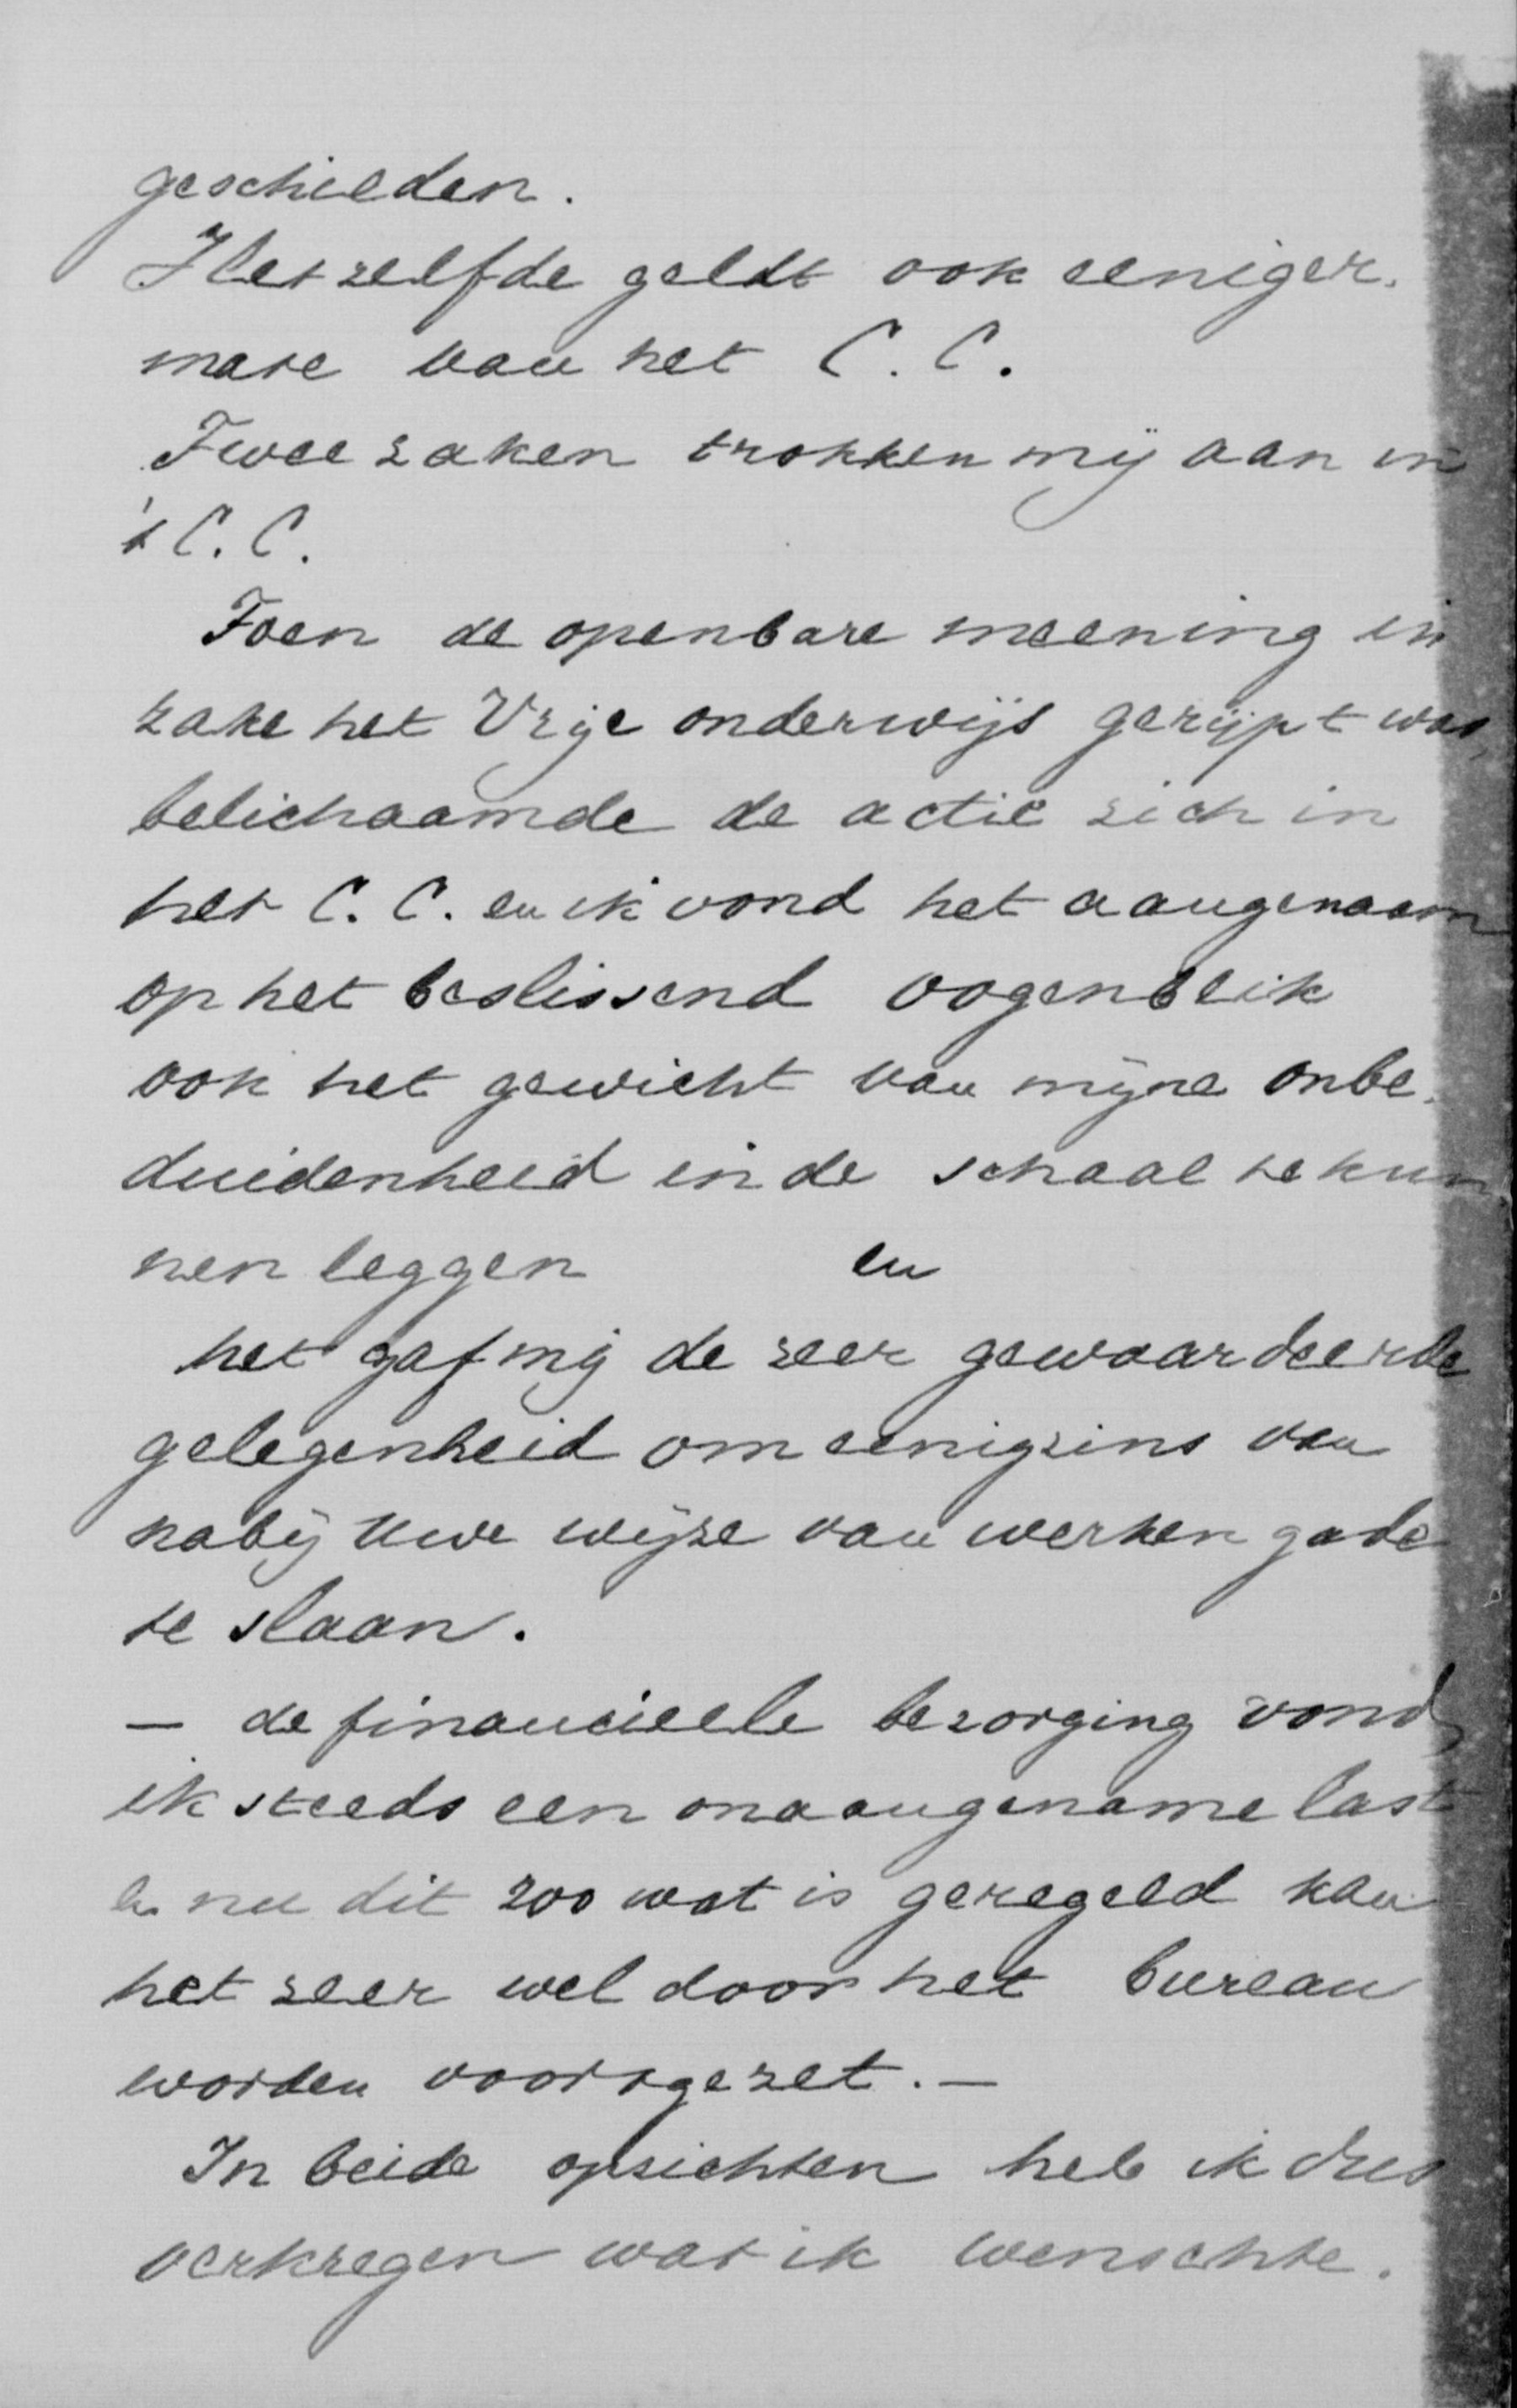 geschieden.
Hetzelfde geldt ook eeniger-
mate van het C. C.
Twee zaken trokken mij aan in
't C. C.
Toen de openbare meening in
zake het Vrije onderwijs gerijpt was,
belichaamde de actie zich in
het C. C. en ik vond het aangenaam
op het beslissend oogenblik
ook het gewicht van mijne onbe-
duidenheid in de schaal te kun-
nen leggen en
het gaf mij de zeer gewaardeerde
gelegenheid om eenigzins van
nabij Uwe wijze van werken gade
te slaan.
— de financieele bezorging vond
ik steeds een onaangename last
en nu dit zoo wat is geregeld kan
het zeer wel door het bureau
worden voortgezet. —
In beide opzichten heb ik dus
verkregen wat ik wenschte.